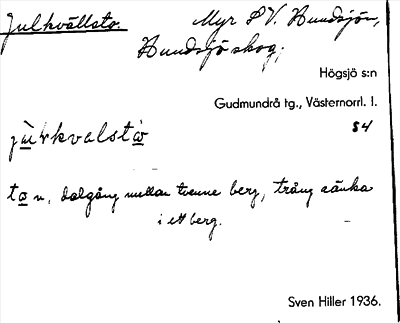 Julkvällsto. Myr S V. Hundsjön,
Hundsjöskog;
Högsjö s:n
Gudmundrå tg., Västernorrl. l.
54
to n, dalgång mellan tvenne berg, trång sänka
i ett berg.
Sven Hiller 1936.